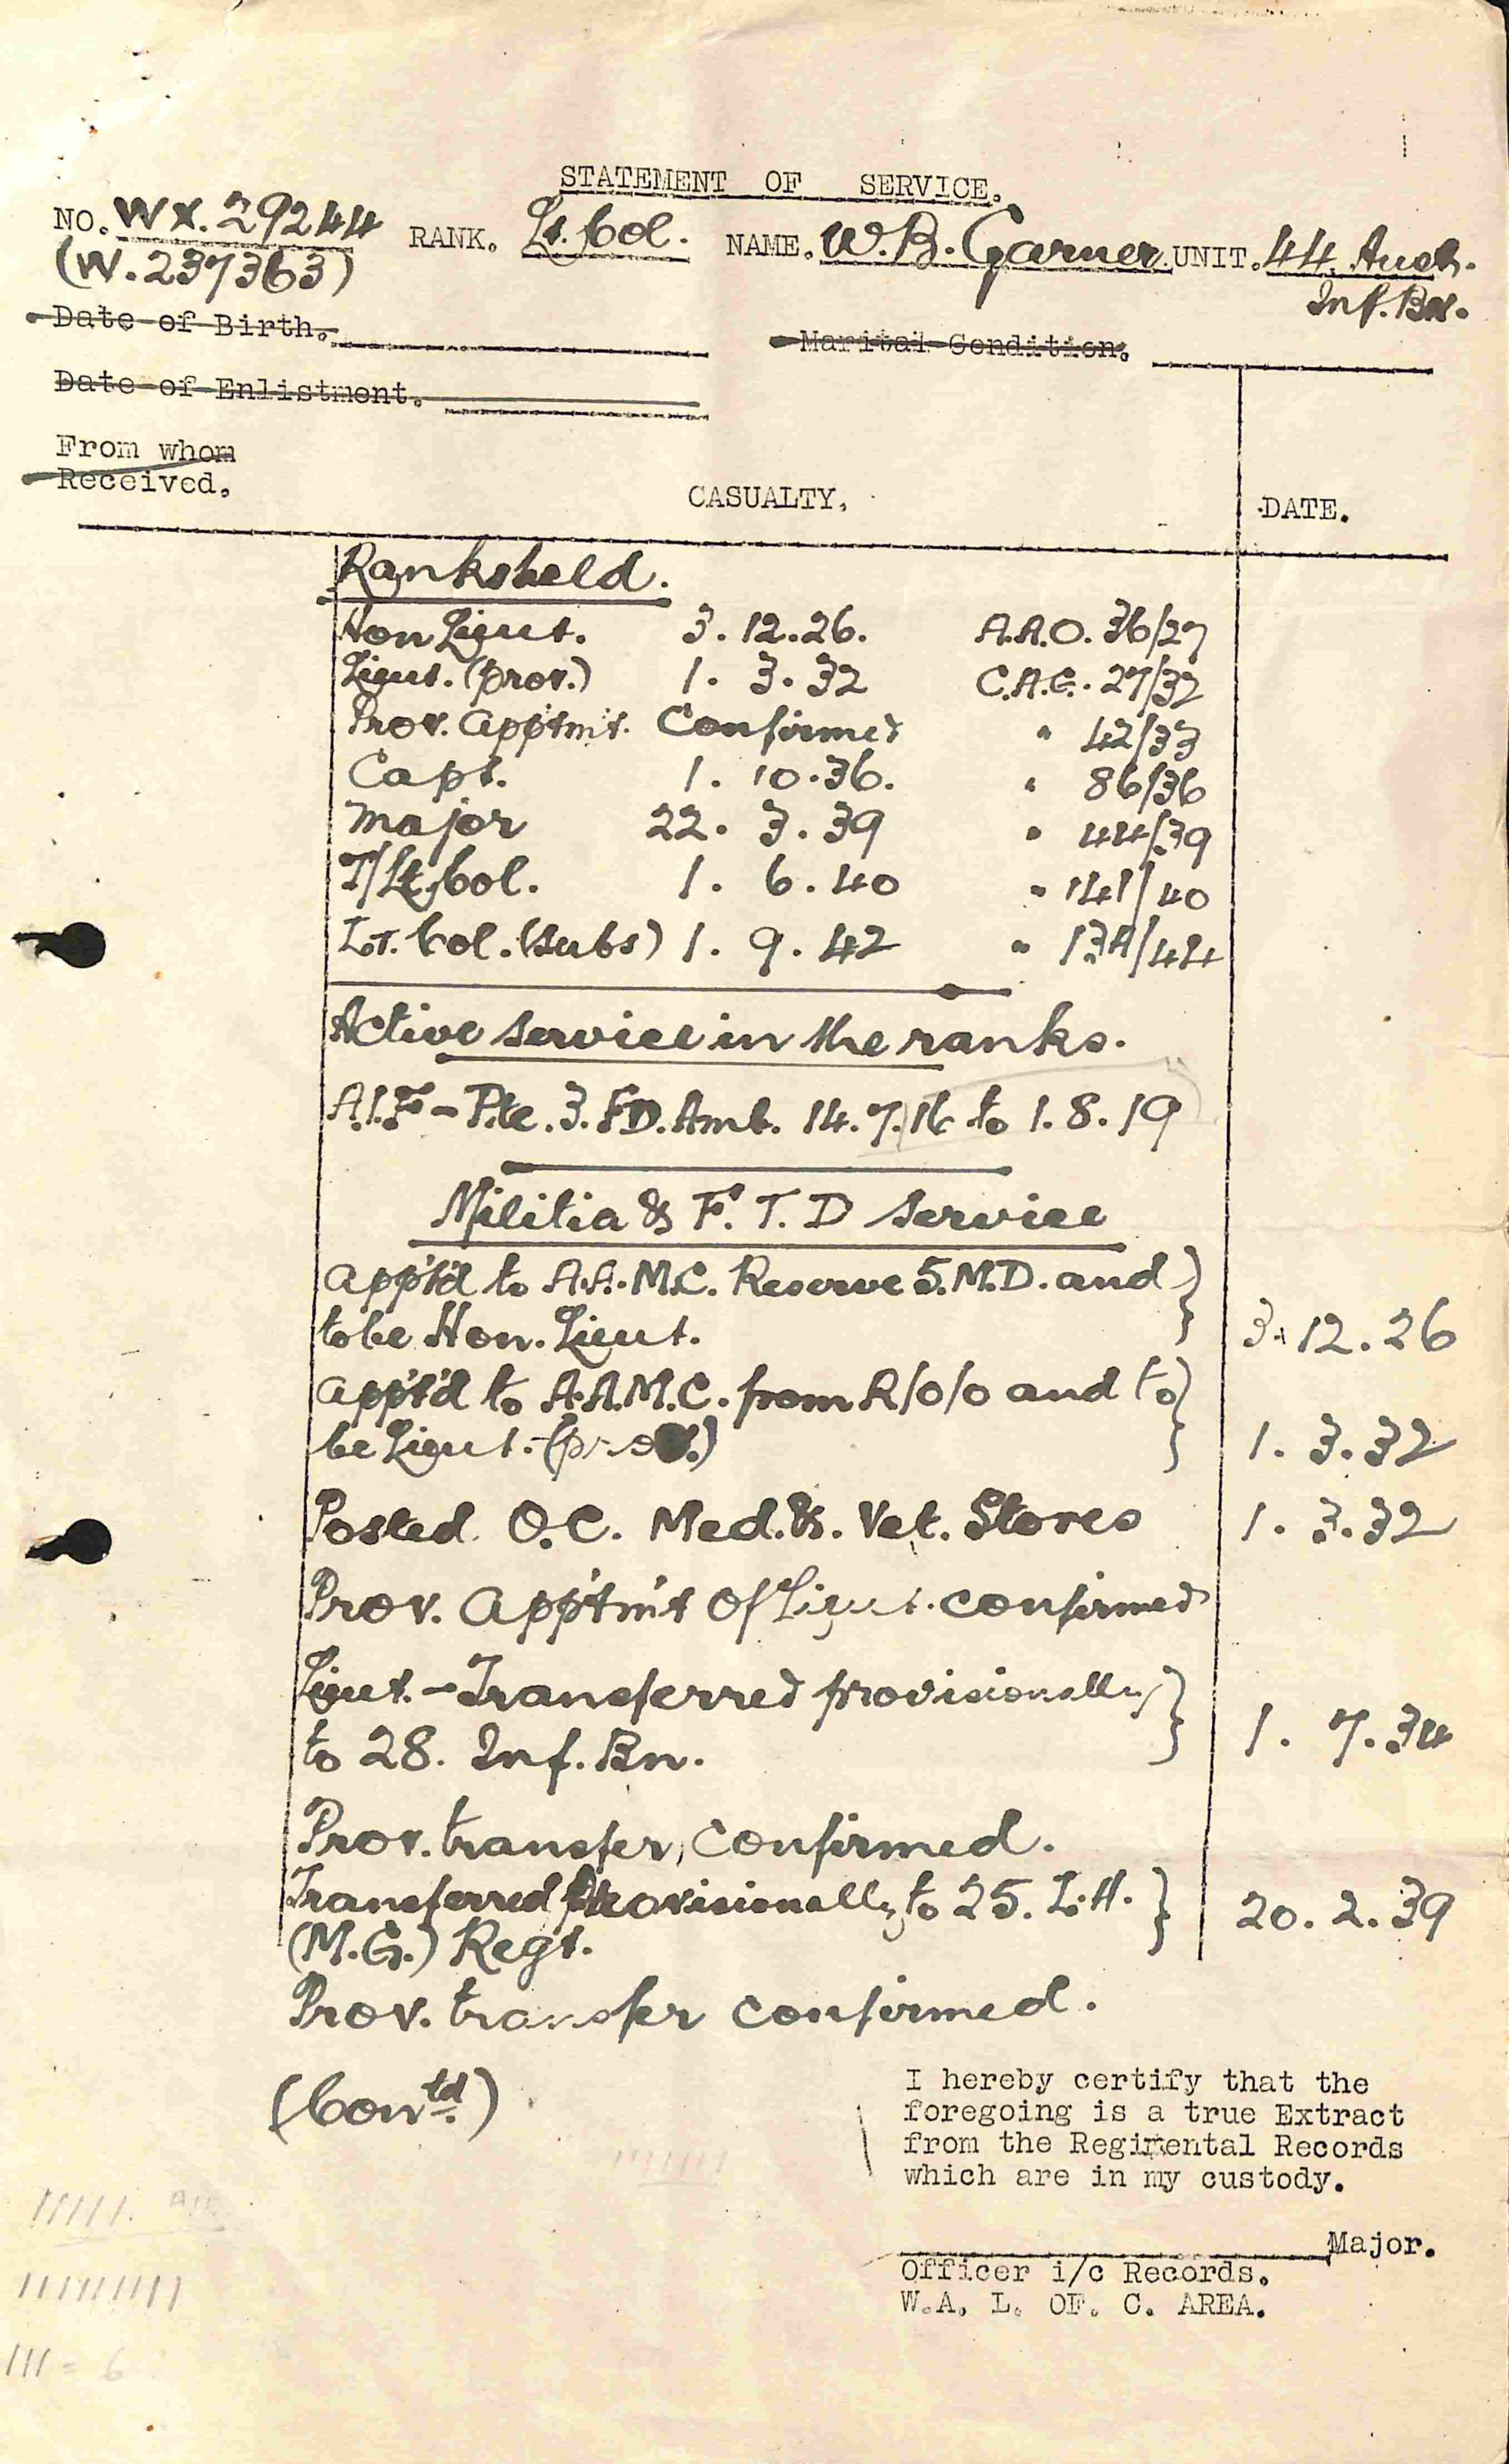 STATEMENT OF SERVICE.
NO. WX.29244 RANK. Lt. Col. NAME. W.B. Garner UNIT. 44. Aust.
(W.237363) Inf. Bn.
Date of Birth.
Marital Condition.
Date of Enlistment.
From whom
Received.
CASUALTY. DATE.
Ranks held.
Hon Lieut. 3.12.26. A.A.O. 36/27
Lieut. (prov.) 1. 3. 32 C.A.G. 27/32
Prov. Apptm't. Confirmed " 42/33
Capt. 1. 10.36. " 86/36
Major 22. 3. 39 " 44/39
T/Lt. Col. 1. 6. 40 " 141/40
Lt. Col. (Subs) 1. 9. 42 " 134/44
Active service in the ranks.
A.I.F - Pte. 3. FD. Amb. 14.7.16 to 1.8.19
Militia & F.T.D Service
App't'd to A.A.M.C. Reserve 5.M.D. and
to be Hon. Lieut. 3.12.26
App't'd to A.A.M.C. from R/o/o and to
be Lieut. (prov.) 1. 3. 32
Posted O.C. Med. & Vet. Stores 1. 3. 32
Prov. App'tm't of Lieut. confirmed
Lieut. - Transferred provisionally
to 28. Inf. Bn. 1. 7. 34
Prov. transfer, confirmed.
Transferred provisionally to 25. L.H. 20. 2. 39
(M.G.) Regt.
Prov. transfer confirmed.
(Contd.)
I hereby certify that the
foregoing is a true Extract
from the Regimental Records
which are in my custody.
Major.
Officer i/c Records.
W.A. L. OF. C. AREA.
III = 6